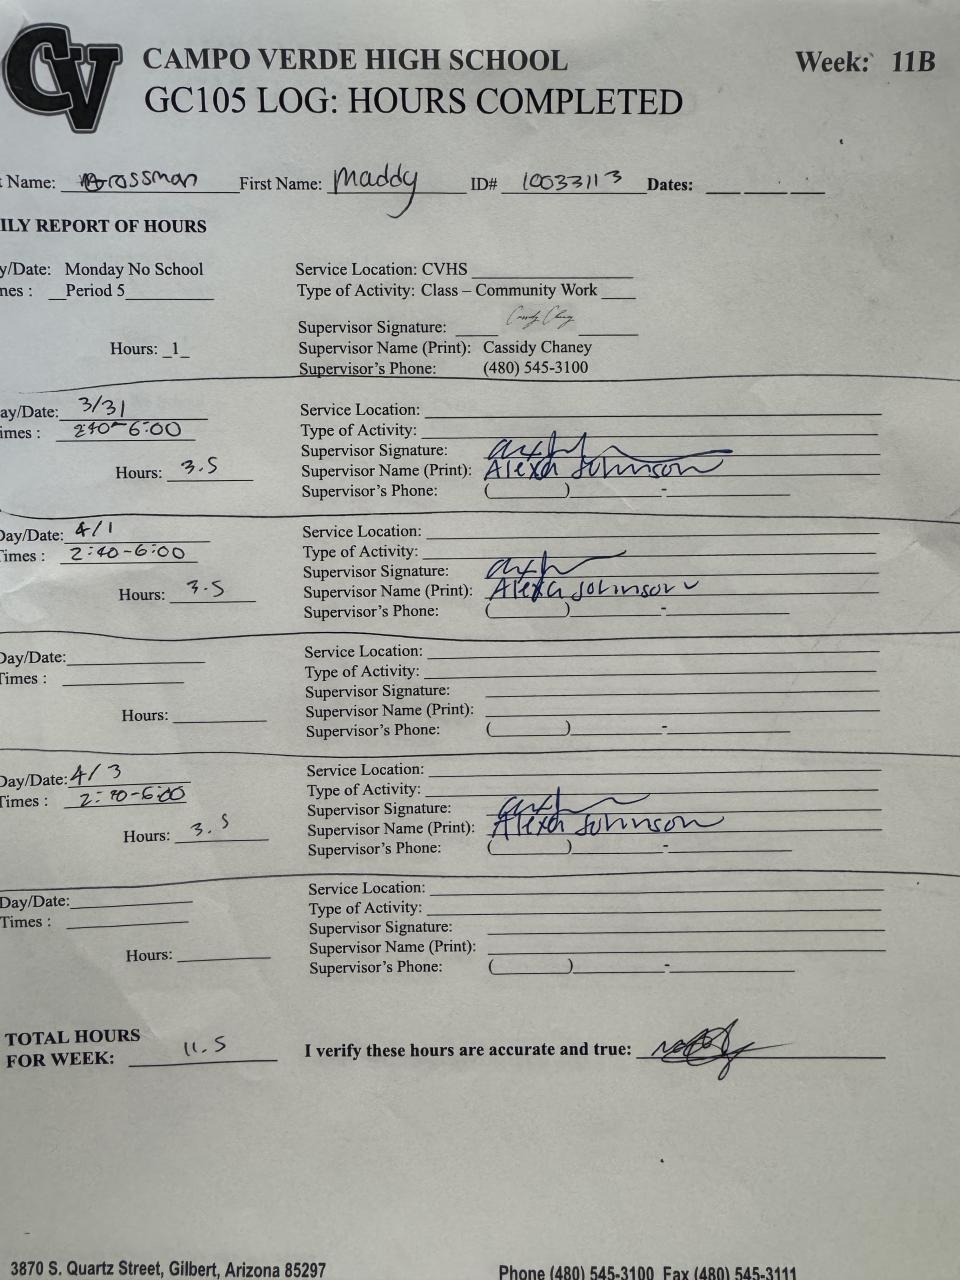 CV
CAMPO VERDE HIGH SCHOOL Week: 11B
GC105 LOG: HOURS COMPLETED
t Name: Grossman First Name: Maddy ID# 10033113 Dates: ___ ___ ___
ILY REPORT OF HOURS
y/Date: Monday No School Service Location: CVHS
nes : Period 5 Type of Activity: Class – Community Work
Supervisor Signature: Cassidy Chaney
Hours: _1_ Supervisor Name (Print): Cassidy Chaney
Supervisor's Phone: (480) 545-3100
ay/Date: 3/31 Service Location:
imes : 2:40-6:00 Type of Activity:
Supervisor Signature:
Hours: 3.5 Supervisor Name (Print): Alexa Johnson
Supervisor's Phone: ( ) -
Day/Date: 4/1 Service Location:
Times : 2:40-6:00 Type of Activity:
Supervisor Signature:
Hours: 3.5 Supervisor Name (Print): Alexa Johnson
Supervisor's Phone: ( ) -
Day/Date: Service Location:
Times : Type of Activity:
Supervisor Signature:
Hours: Supervisor Name (Print):
Supervisor's Phone: ( ) -
Day/Date: 4/3 Service Location:
Times : 2:40-6:00 Type of Activity:
Supervisor Signature:
Hours: 3.5 Supervisor Name (Print): Alexa Johnson
Supervisor's Phone: ( ) -
Day/Date: Service Location:
Times : Type of Activity:
Supervisor Signature:
Hours: Supervisor Name (Print):
Supervisor's Phone: ( ) -
TOTAL HOURS
FOR WEEK: 11.5 I verify these hours are accurate and true:
3870 S. Quartz Street, Gilbert, Arizona 85297 Phone (480) 545-3100 Fax (480) 545-3111